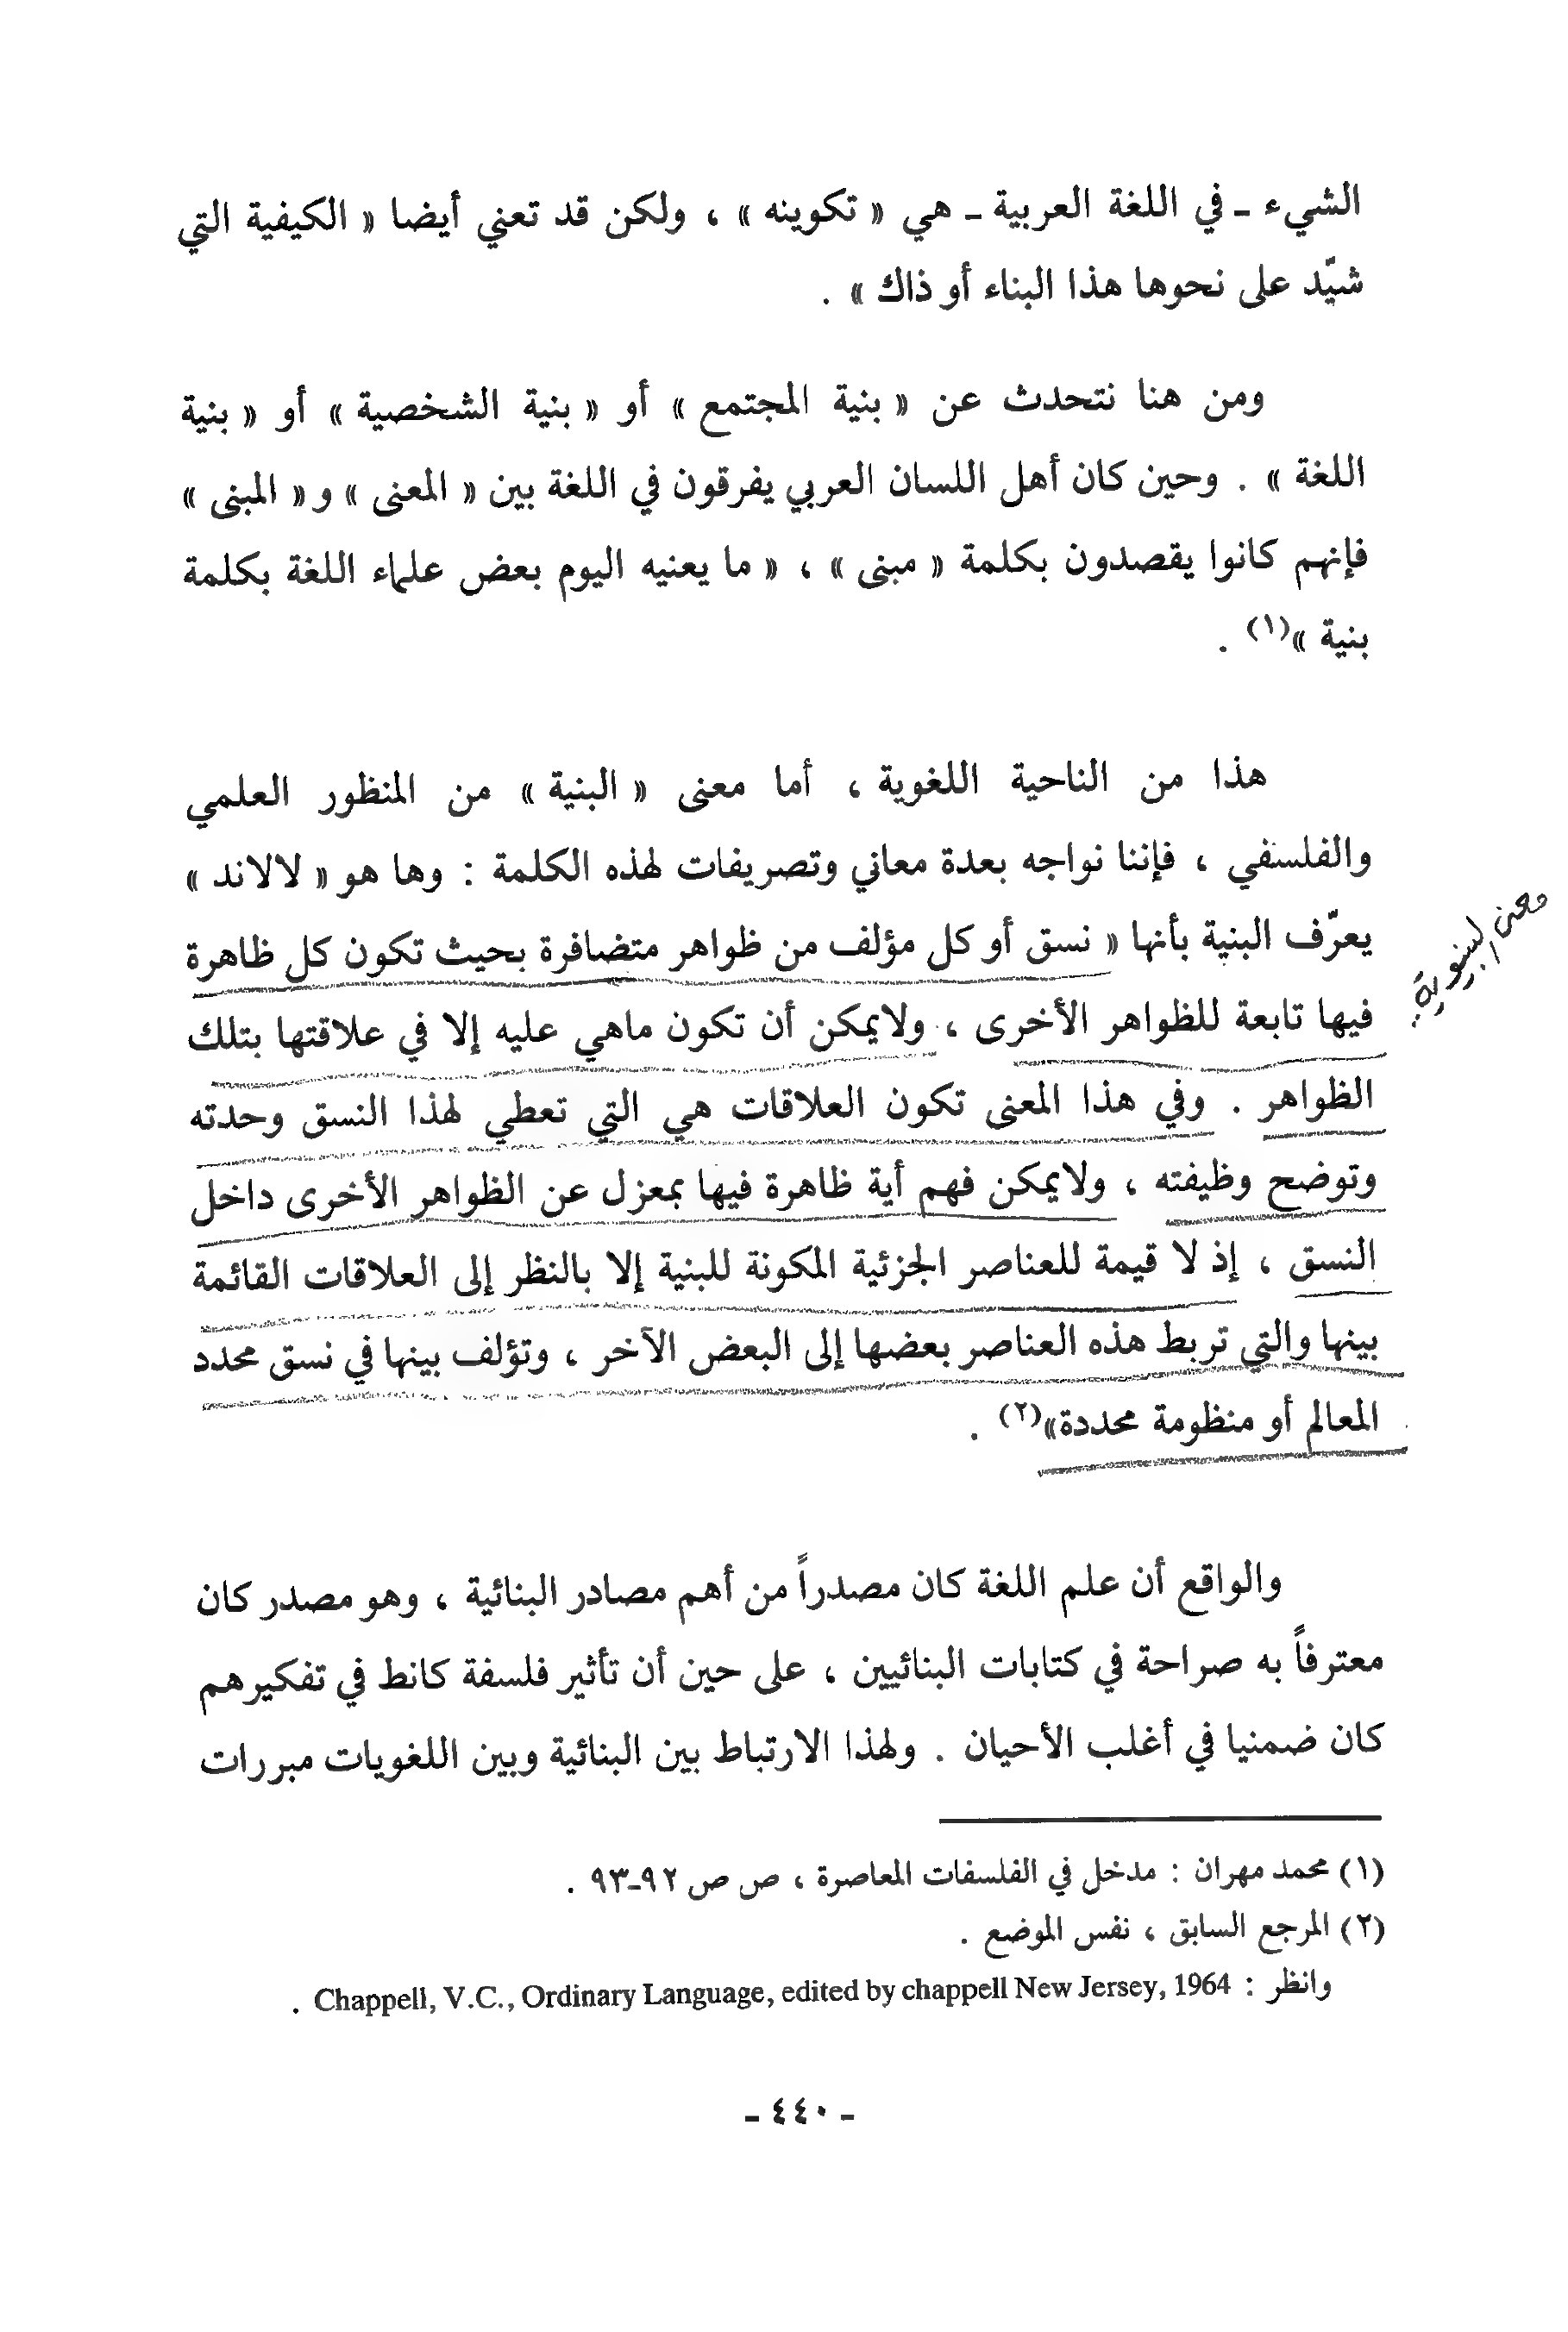 الشيء ـ في اللغة العربية ـ هي « تكوينه » ، ولكن قد تعني أيضا « الكيفية التي
شيّد على نحوها هذا البناء أو ذاك » .
ومن هنا نتحدث عن « بنية المجتمع » أو « بنية الشخصية » أو « بنية
اللغة » . وحين كان أهل اللسان العربي يفرقون في اللغة بين « المعنى » و « المبنى »
فإنهم كانوا يقصدون بكلمة « مبنى » ، « ما يعنيه اليوم بعض علماء اللغة بكلمة
بنية »(١) .
هذا من الناحية اللغوية ، أما معنى « البنية » من المنظور العلمي
والفلسفي ، فإننا نواجه بعدة معاني وتصريفات لهذه الكلمة : وها هو « لالاند »
يعرّف البنية بأنها « نسق أو كل مؤلف من ظواهر متضافرة بحيث تكون كل ظاهرة
فيها تابعة للظواهر الأخرى ، ولايمكن أن تكون ماهي عليه إلا في علاقتها بتلك
الظواهر . وفي هذا المعنى تكون العلاقات هي التي تعطي لهذا النسق وحدته
وتوضح وظيفته ، ولايمكن فهم أية ظاهرة فيها بمعزل عن الظواهر الأخرى داخل
النسق ، إذ لا قيمة للعناصر الجزئية المكونة للبنية إلا بالنظر إلى العلاقات القائمة
بينها والتي تربط هذه العناصر بعضها إلى البعض الآخر ، وتؤلف بينها في نسق محدد
المعالم أو منظومة محددة»(٢) .
والواقع أن علم اللغة كان مصدراً من أهم مصادر البنائية ، وهو مصدر كان
معترفاً به صراحة في كتابات البنائيين ، على حين أن تأثير فلسفة كانط في تفكيرهم
كان ضمنيا في أغلب الأحيان . ولهذا الارتباط بين البنائية وبين اللغويات مبررات
(١) محمد مهران : مدخل في الفلسفات المعاصرة ، ص ص ٩٢ـ٩٣ .
(٢) المرجع السابق ، نفس الموضع .
وانظر : Chappell, V.C., Ordinary Language, edited by chappell New Jersey, 1964 .
ـ ٤٤٠ ـ